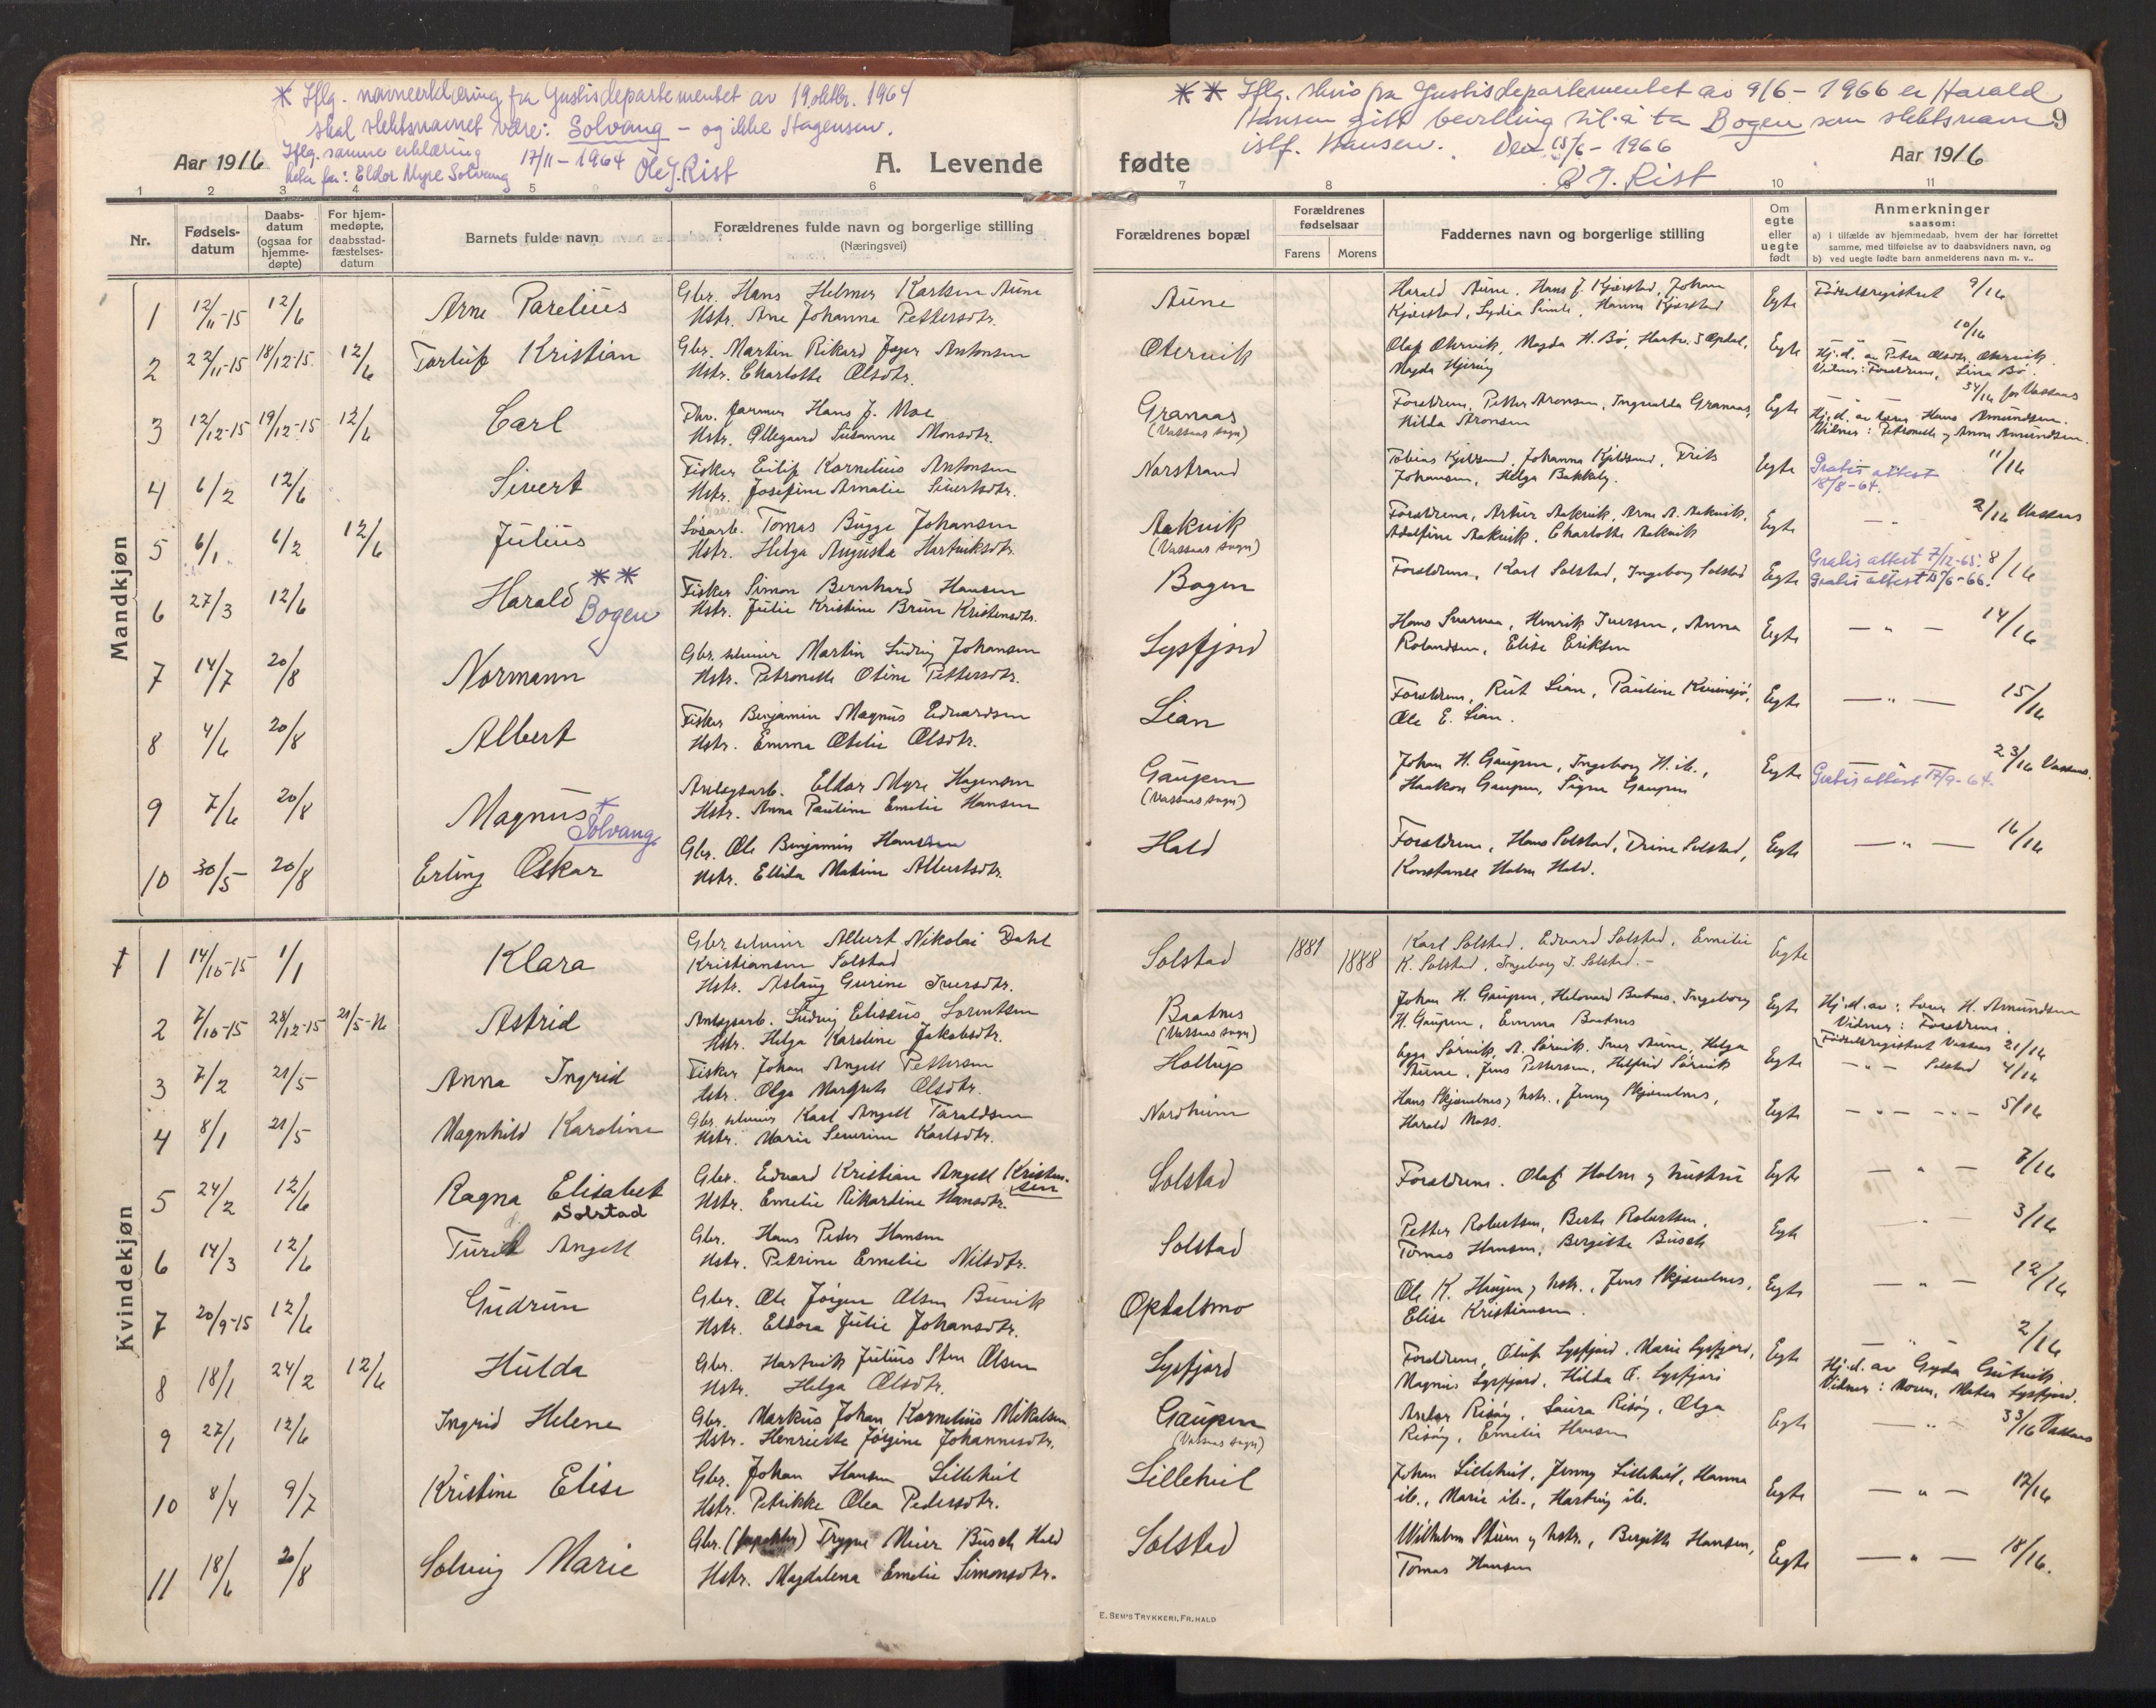 * Iflg. navneerklæring fra Justisdepartementet av 19. oktbr. 1964
skal slektsnavnet være: Solvang - og ikke Hagensen.
Iflg. samme erklæring
17/11 - 1964 Ole J. Rist
heter far: Eldor Myre Solvang
** Iflg. skriv fra Justisdepartementet av 9/6 - 1966 er Harald
Hansen gitt bevilling til å ta Bogen som slektsnavn
istf. Hansen. Den 15/6 - 1966
O J. Rist
9
Aar 1916
A. Levende fødte
Aar 1916
1 2 3 4 5 6 7 8 10 11
Nr.
Fødsels-datum
Daabs-datum (ogsaa for hjemme-døpte)
For hjem-medøpte, daabsstad-fæstelses-datum
Barnets fulde navn
Forældrenes fulde navn og borgerlige stilling
(Næringsvei)
Forældrenes bopæl
Forældrenes fødselsaar
Farens Morens
Faddernes navn og borgerlige stilling
Om egte eller uegte født
Anmerkninger
saasom:
a) i tilfælde av hjemmedaab, hvem der har forrettet samme, med tilføielse av to daabsvidners navn, og
b) ved uegte fødte barn anmelderens navn m. v..
Mandkjøn
1 12/11-15 12/6 Arne Parelius Gbr. Hans Helmer Karlsen Aune Aune Harald Aune, Hans J. Kjærstad, Johan Egte Fødselsregistret 9/16
Hstr. Ane Johanna Pettersdtr. Kjærstad, Lydia, Hanna Kjærstad
2 22/11-15 18/12-15 12/6 Kristian Gbr. Martin Rikard Jæger Antonsen Otervik Olaf Otervik, Magda H. Bø, Egte 10/16
Hstr. Charlotte Olsdtr. Magda Hj.d. av Petra Olsdtr. Otervik.
Vidner: Forældrene, Lina Bø.
3 12/12-15 19/12-15 12/6 Carl Fhv. farmer Hans J. Moe Granaas Forældrene, Petter Aronsen, Ingvalda Granaas, Egte 34/16 for Vassaas
Hstr. Ollegaard Susanne Monsdtr. (Vassaas sogn) Hilda Aronsen Hj.d. av lærer Hans Amundsen.
Vidner: Petronelle og Anna Amundsen.
4 6/2 12/6 Sivert Fisker Eilif Kornelius Antonsen Norstrand Tobias Kjeldsand, Johanna Kjeldsand, Frits Egte Gratis attest 11/16
Hstr. Josefine Amalie Sivertsdtr. Johansen, Helga Bakkely. 18/8-64.
5 6/1 6/2 12/6 Julius Løsarb. Tomas Bugge Johansen Aakvik Forældrene, Artur Aakvik, Arne A. Aakvik, Egte - " - 2/16 Vassaas
Hstr. Helga Augusta Hartviksdtr. (Vassaas sogn) Adolfine Aakvik, Charlotte Aakvik
6 27/3 12/6 Harald ** Bogen Fisker Simon Bernhard Hansen Bogen Forældrene, Karl Solstad, Ingeborg Solstad Egte Gratis attest 7/12-65. 8/16
Hstr. Julie Kristine Brun Kristensdtr. Gratis attest 15/6-66.
7 14/7 20/8 Normann Gbr. selveier Martin Ludvig Johansen Lysfjord Hans, Henrik Iversen, Anna Egte - " - 14/16
Hstr. Petronelle Otine Pettersdtr. Rolandsen, Elise Eriksen
8 4/6 20/8 Albert Fisker Benjamin Magnus Edvardsen Lian Forældrene, Rut Lian, Pauline, Egte - " - 15/16
Hstr. Emma Otelie Olsdtr. Ole E. Lian.
9 7/6 20/8 Magnus * Solvang Anlegsarb. Eldor Myre Hagensen Gaupen Johan H. Gaupen, Ingeborg H. ib., Egte 23/16 Vassaas.
Hstr. Anna Pauline Emelie Hansen (Vassaas sogn) Haakon Gaupen, Signe Gaupen Gratis attest 17/9-64.
10 30/5 20/8 Erling Oskar Gbr. Ole Benjamin Hansen Hald Forældrene, Hans Solstad, Trine Solstad, Egte - " - 16/16
Hstr. Ellida Matine Albertsdtr. Konstanse Holm Hald.
Kvindekjøn
† 1 14/10-15 1/1 Klara Gbr. selveier Albert Nikolai Dahl Solstad 1881 1888 Karl Solstad, Edvard Solstad, Emilie Egte
Kristiansen Solstad K. Solstad, Ingeborg J. Solstad. -
Hstr. Aslaug Gurine Iversdtr.
2 7/10-15 28/12-15 21/5-16 Astrid Anlegsarb. Ludvig Eliseus Lorentsen Baatnes Johan H. Gaupen, Helovard Baatnes, Ingeborg Egte Hj.d. av: Lærer H. Amundsen
Hstr. Helga Karoline Jakobsdtr. (Vassaas sogn) H. Gaupen, Emma Baatnes Vidner: Forældrene.
Fødselsregistret Vassaas 21/16
3 7/2 21/5 Anna Ingrid Fisker Johan Angell Pettersen Holtup Egge Sørvik, A. Sørvik, Iver Aune, Helga Egte - " - Solstad 4/16
Hstr. Olga Margrete Olsdtr. Aune, Jens Pettersen, Helfrid Sørvik
4 8/1 21/5 Magnhild Karoline Gbr. selveier Karl Angell Taraldsen Nordheim Hans Skjærelnes og hstr., Jenny Skjærelnes, Egte - " - - " - 5/16
Hstr. Marie Severine Karlsdtr. Harald Moss.
5 24/2 12/6 Ragna Elisabet Solstad Gbr. Edvard Kristian Angell Kristensen Solstad Forældrene, Olaf Holm og hustru Egte - " - 7/16
Hstr. Emelie Rikardine Hansdtr.
6 14/3 12/6 Turid Angell Gbr. Hans Peder Hansen Solstad Petter Robertsen, Berte Robertsen, Egte 3/16
Hstr. Petrine Emelie Nilsdtr. Tomas Hansen, Bergitte Busch
7 20/9-15 12/6 Gudrun Gbr. Ole Jørgen Olsen Buvik Opdalsmo Ole K. Haugen og hstr., Jens Skjærelnes, Egte - " - 12/16
Hstr. Eldora Julie Johansdtr. Elise Kristiansen.
8 18/1 24/2 12/6 Hulda Gbr. Hartvik Julius Sten Olsen Lysfjord Forældrene, Oluf Lysfjord, Marie Lysfjord, Egte - " - 2/16
Hstr. Helga Olsdtr. Magnus Lysfjord, Hilda O. Lysfjord Hj.d. av Gyda Gutvik.
Vidner: Moren, Metea Lysfjord.
9 27/1 12/6 Ingrid Helene Gbr. Markus Johan Kornelius Mikalsen Gaupen Anton Risøy, Laura Risøy, Olga Egte - " - 33/16 Vassaas
Hstr. Henriette Jørgine Johannesdtr. (Vassaas sogn) Risøy, Emelie Hansen
10 8/4 9/7 Kristine Elise Gbr. Johan Hansen Lilleheil Lilleheil Johan Lilleheil, Jenny Lilleheil, Hanna Egte - " - 17/16
Hstr. Petrikke Olea Pedersdtr. ib., Marie ib., Hartvig ib.
11 18/6 20/8 Solveig Marie Gbr. Trygve Meier Busch Hald Solstad Wilhelm og hstr., Bergitte Hansen, Egte - " - 18/16.
Hstr. Magdalena Emelie Simonsdtr. Tomas Hansen
E. SEM'S TRYKKERI, FR.HALD